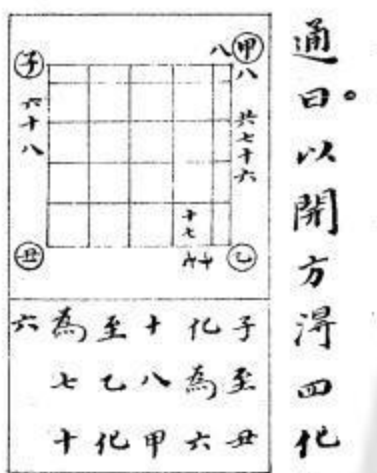 通曰。以開方淂四化
甲
八
八
共七十六
乙
子
六十八
丑
十七
子至丑
化為六
十八甲
至乙化
為七十
六